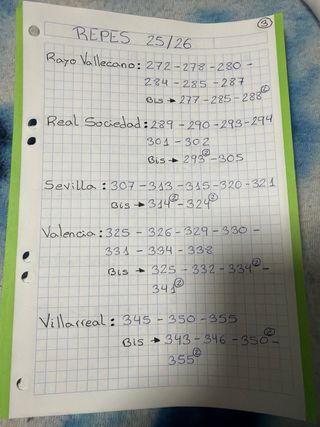 ③
REPES 25/26
Rayo Vallecano: 272-278-280-
284-285-287
Bis → 277-285-288②
Real Sociedad: 289-290-293-294
301-302
Bis → 293②-305
Sevilla: 307-313-315-320-321
Bis → 314②-324②
Valencia: 325-326-329-330-
331-334-338
Bis → 325-332-334②-
341②
Villarreal: 345-350-355
Bis → 343-346-350②-
355②